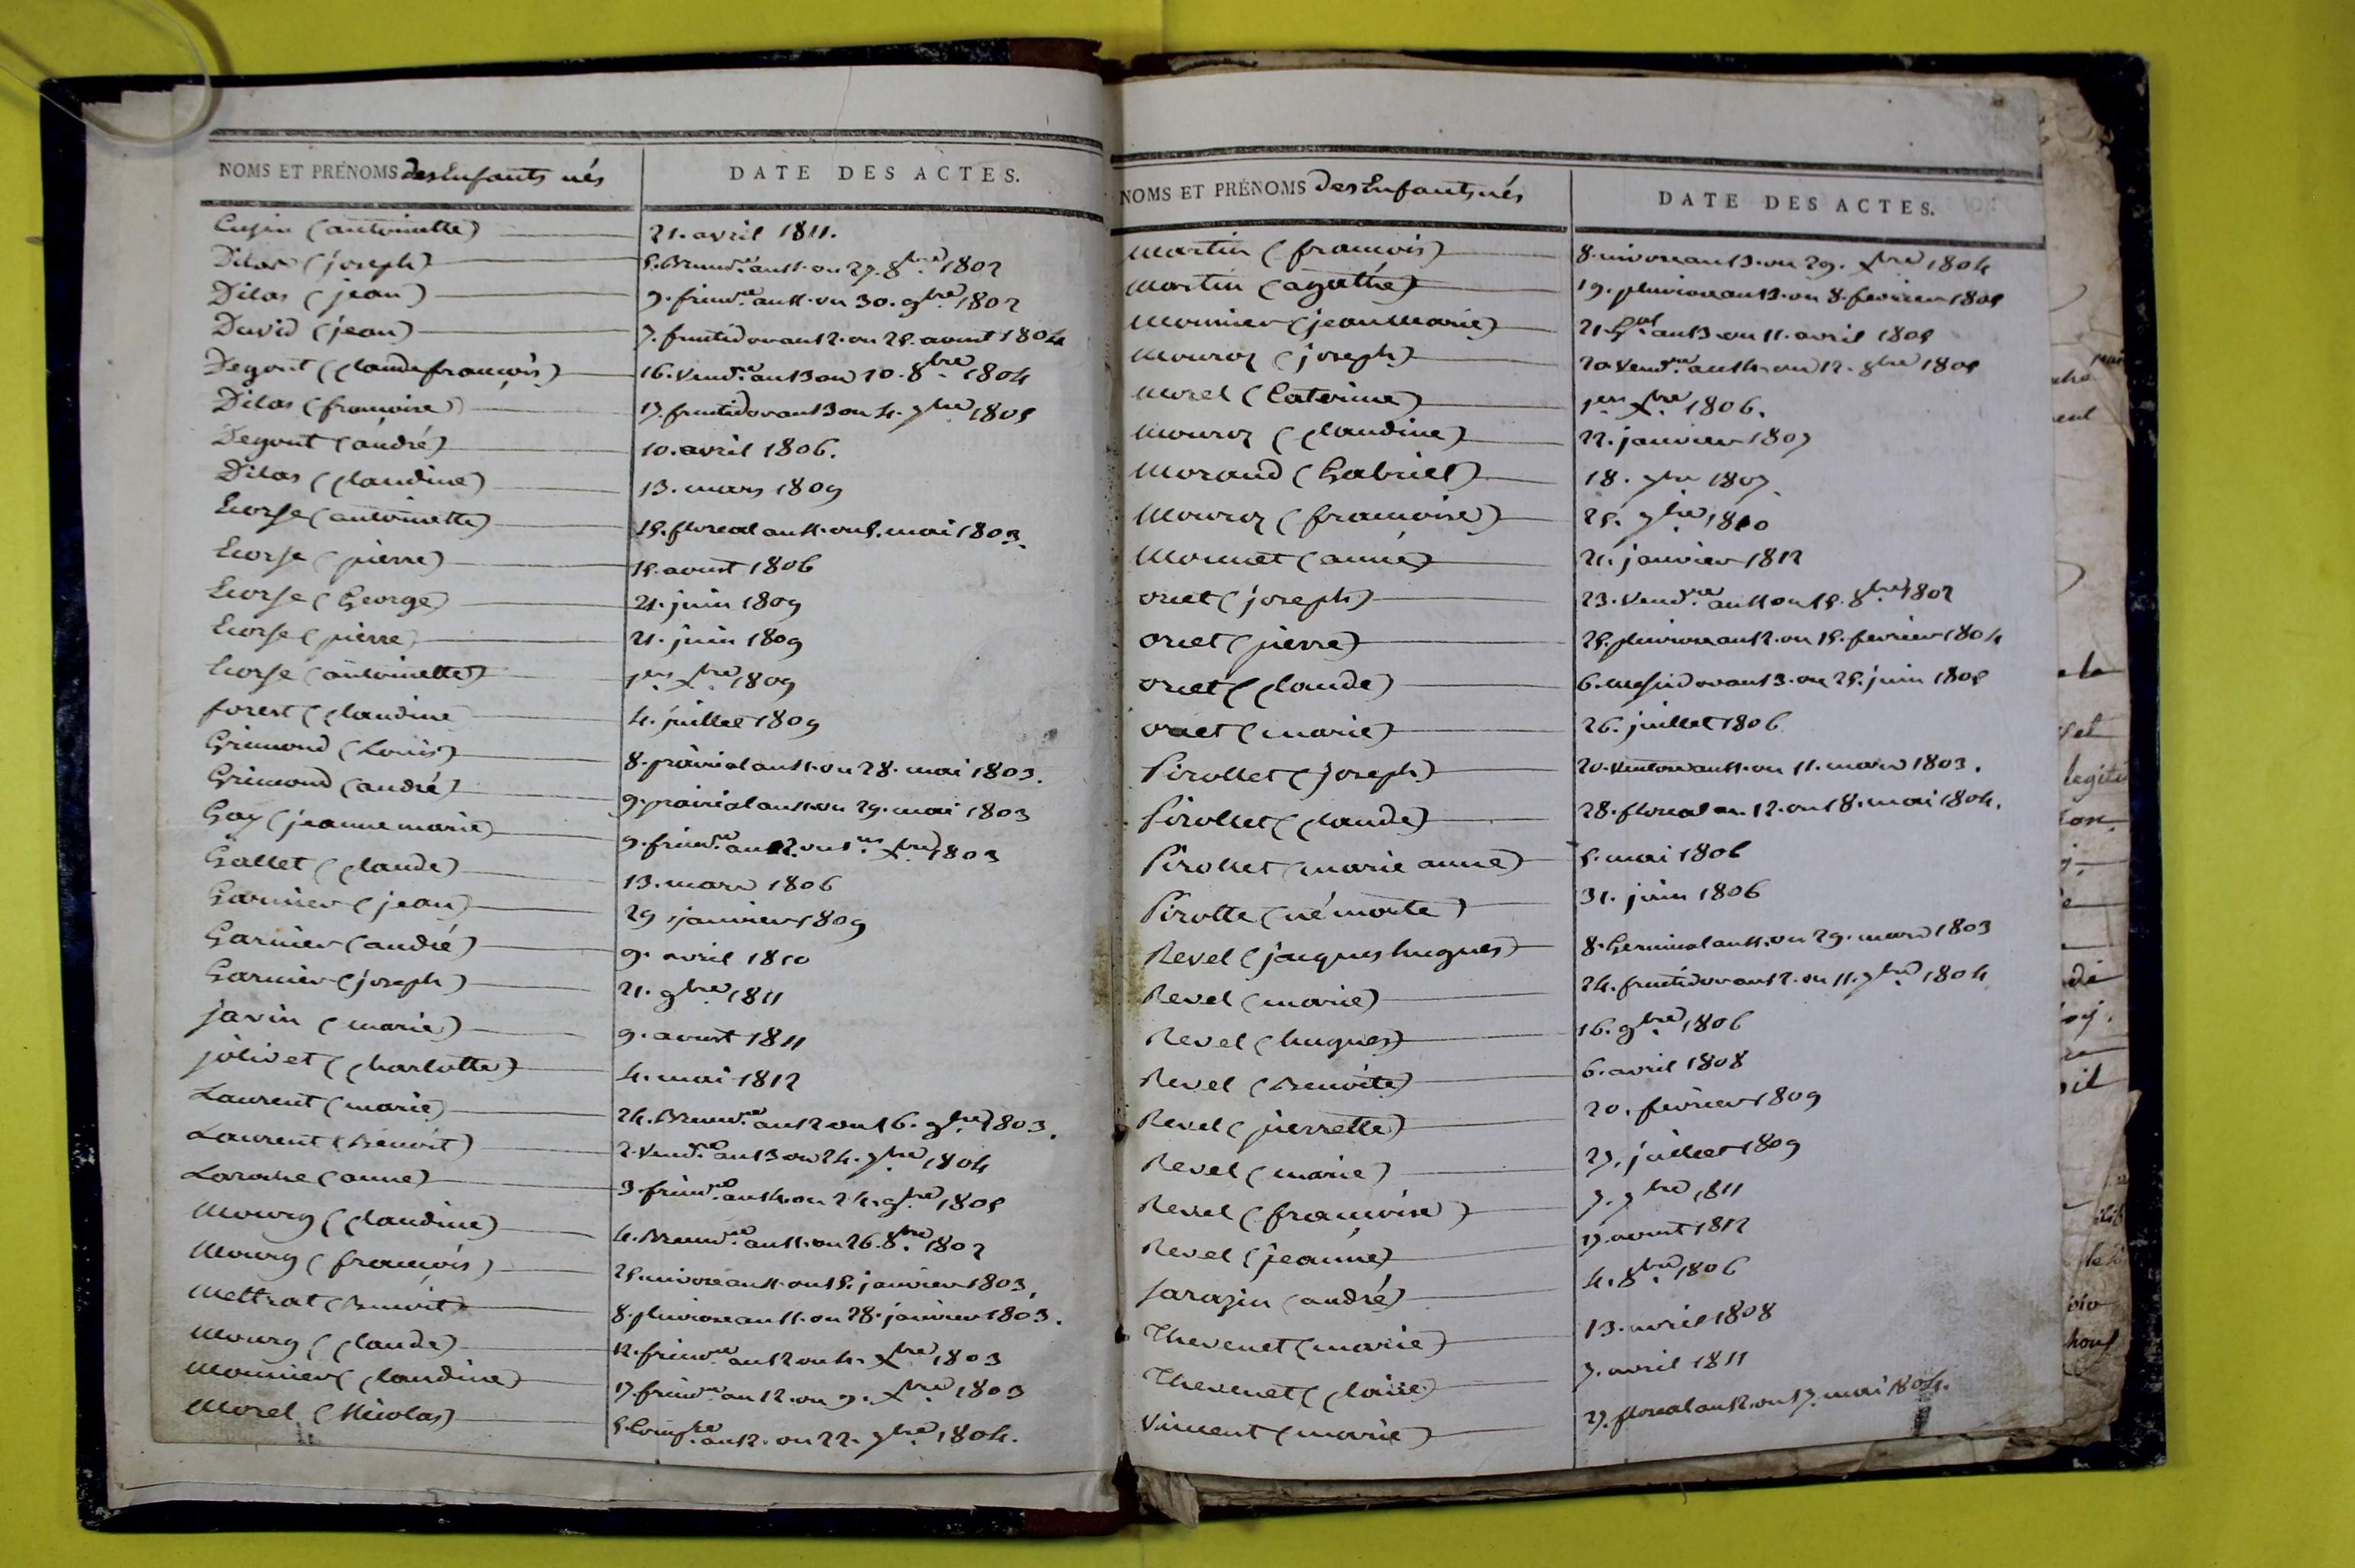 NOMS ET PRÉNOMS des Enfants nés DATE DES ACTES.
Cusin (antoinette) 21. avril 1811.
Dilas (joseph) 5. Brum.re an 11. ou 27. 8bre 1802
Dilas (jean) 9. frim.re an 11. ou 30. 9bre 1802
David (jean) 7. fructidor an 12. ou 25. aout 1804
Degout (Claude françois) 16. Vend.re an 13 ou 10. 8bre 1804
Dilas (françoise) 17. fructidor an 13 ou 4. 7bre 1805
Degout (andré) 10. avril 1806.
Dilas (Claudine) 13. mars 1809
Ecorse (antoinette) 15. floreal an 11. ou 5. mai 1803.
Ecorse (pierre) 15. aoust 1806
Ecorse (George) 21. juin 1809
Ecorse (pierre) 21. juin 1809
Ecorse (antoinette) 1er xbre 1809
forest (Claudine 4. juillet 1809
Grimond (Louis) 8. prairial an 11. ou 28. mai 1803.
Grimond (andré) 9. prairial an 11. ou 29. mai 1803
Gay (jeanne marie) 9. frim.re an 12. ou 1er xbre 1803
Gallet (Claude) 13. mars 1806
Garnier (jean) 29 janvier 1809
Garnier (andré) 9. avril 1810
Garnier (joseph) 21. 9bre 1811
javin (marie) 9. aoust 1811
jolivet (Charlotte) 4. mai 1812
Laurent (marie) 24. Brum.re an 12 ou 16. 9bre 1803.
Laurent (Benoit) 2. Vend.re an 13 ou 24. 7bre 1804
Laroche (anne) 3. frim.re an 14. ou 24. 9bre 1805
Mourg (Claudine) 4. Brum.re an 11. ou 26. 8bre 1802
Mourg (françois) 25. nivose an 11. ou 15. janvier 1803.
Mettrat (Benoit) 8. pluviose an 11. ou 28. janvier 1803.
Mourg (Claude) 12. frim.re an 12 ou 4. xbre 1803
Monnier (Claudine) 17. frim.re an 12. ou 9. xbre 1803
Morel (Nicolas) 5. Comp.re an 12. ou 22. 7bre 1804.
NOMS ET PRÉNOMS des Enfants nés DATE DES ACTES.
Martin (françois) 8. nivose an 13. ou 29. xbre 1804
Martin (agathe) 19. pluviose an 13. ou 8. fevrier 1805
Monnier (jean Marie) 21. G.al an 13 ou 11. avril 1805
Mouroz (joseph) 20 Vend.re an 14 ou 12. 8bre 1805
Morel (Caterine) 1er xbre 1806.
Mouroz (Claudine) 22. janvier 1807
Morand (Gabriel) 18. 7bre 1807.
Mouroz (françoise) 25. 7bre 1810
Monnet (anne) 21. janvier 1812
oriet (joseph) 23. Vend.re an 11 ou 15. 8bre 1802
oriet (pierre) 25. pluviose an 12. ou 15. fevrier 1804
oriet (Claude) 6. Messidor an 13. ou 25. juin 1805
oriet (marie) 26. juillet 1806
Pirollet (joseph) 20. Ventose an 11. ou 11. mars 1803.
Pirollet (Claude) 28. floreal an. 12. ou 18. mai 1804.
Pirollet (marie anne) 5. mai 1806
Pirotte (né morte) 31. juin 1806
Revel (jacques hugues) 8. Germinal an 11. ou 29. mars 1803
Revel (marie) 24. fructidor an 12. ou 11. 7bre 1804
Revel (hugues) 16. 9bre 1806
Revel (Benoite) 6. avril 1808
Revel (pierrette) 20. fevrier 1809
Revel (marie) 27. juillet 1809
Revel (françoise) 7. 7bre 1811
Revel (jeanne) 17. aoust 1812
Sarazin (andré) 4. 8bre 1806
Thevenet (marie) 13. avril 1808
Thevenet (Claise) 7. avril 1811
Vincent (marie) 27. floreal an 12. ou 17. mai 1804.